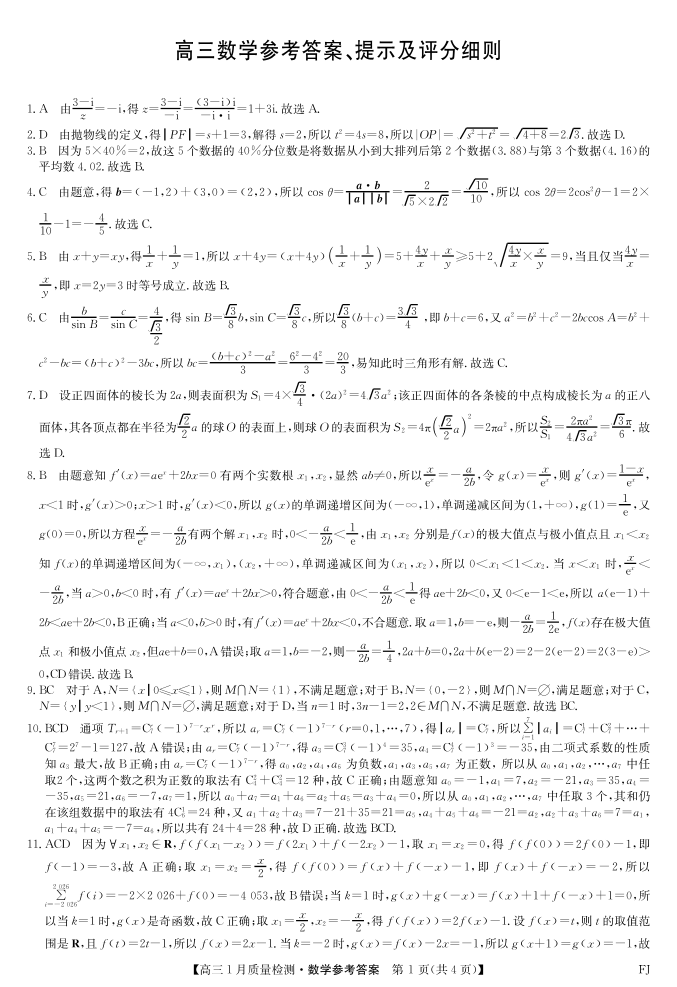 高三数学参考答案、提示及评分细则
1. A 由\frac{3-i}{z}=-i,得 z=\frac{3-i}{-i}=\frac{(3-i)i}{-i·i}=1+3i. 故选 A.
2. D 由抛物线的定义,得|PF|=s+1=3,解得 s=2,所以 t²=4s=8,所以|OP|=√(s²+t²)=√(4+8)=2√3. 故选 D.
3. B 因为 5×40%=2,故这 5 个数据的 40%分位数是将数据从小到大排列后第 2 个数据(3.88)与第 3 个数据(4.16)的
平均数 4.02. 故选 B.
4. C 由题意,得 b=(-1,2)+(3,0)=(2,2),所以 cos θ=\frac{a·b}{|a||b|}=\frac{2}{√5×2√2}=\frac{√10}{10},所以 cos 2θ=2cos²θ-1=2×
\frac{1}{10}-1=-\frac{4}{5}. 故选 C.
5. B 由 x+y=xy,得\frac{1}{x}+\frac{1}{y}=1,所以 x+4y=(x+4y)(\frac{1}{x}+\frac{1}{y})=5+\frac{4y}{x}+\frac{x}{y}≥5+2√(\frac{4y}{x}×\frac{x}{y})=9,当且仅当\frac{4y}{x}=
\frac{x}{y},即 x=2y=3 时等号成立. 故选 B.
6. C 由\frac{b}{sin B}=\frac{c}{sin C}=\frac{4}{\frac{√3}{2}},得 sin B=\frac{√3}{8}b,sin C=\frac{√3}{8}c,所以\frac{√3}{8}(b+c)=\frac{3√3}{4},即 b+c=6,又 a²=b²+c²-2bccos A=b²+
c²-bc=(b+c)²-3bc,所以 bc=\frac{(b+c)²-a²}{3}=\frac{6²-4²}{3}=\frac{20}{3},易知此时三角形有解. 故选 C.
7. D 设正四面体的棱长为 2a,则表面积为 S₁=4×\frac{√3}{4}·(2a)²=4√3a²;该正四面体的各条棱的中点构成棱长为 a 的正八
面体,其各顶点都在半径为\frac{√2}{2}a 的球 O 的表面上,则球 O 的表面积为 S₂=4π(\frac{√2}{2}a)²=2πa²,所以\frac{S₂}{S₁}=\frac{2πa²}{4√3a²}=\frac{√3π}{6}. 故
选 D.
8. B 由题意知 f′(x)=aeˣ+2bx=0 有两个实数根 x₁,x₂,显然 ab≠0,所以\frac{x}{eˣ}=-\frac{a}{2b},令 g(x)=\frac{x}{eˣ},则 g′(x)=\frac{1-x}{eˣ},
x<1 时,g′(x)>0;x>1 时,g′(x)<0,所以 g(x)的单调递增区间为(-∞,1),单调递减区间为(1,+∞),g(1)=\frac{1}{e},又
g(0)=0,所以方程\frac{x}{eˣ}=-\frac{a}{2b}有两个解 x₁,x₂ 时,0<-\frac{a}{2b}<\frac{1}{e},由 x₁,x₂ 分别是f(x)的极大值点与极小值点且 x₁<x₂
知 f(x)的单调递增区间为(-∞,x₁),(x₂,+∞),单调递减区间为(x₁,x₂),所以 0<x₁<1<x₂. 当 x<x₁ 时,\frac{x}{eˣ}<
-\frac{a}{2b},当 a>0,b<0 时,有 f′(x)=aeˣ+2bx>0,符合题意,由 0<-\frac{a}{2b}<\frac{1}{e}得 ae+2b<0,又 0<e-1<e,所以 a(e-1)+
2b<ae+2b<0,B 正确;当 a<0,b>0 时,有f′(x)=aeˣ+2bx<0,不合题意. 取 a=1,b=-e,则-\frac{a}{2b}=\frac{1}{2e},f(x)存在极大值
点 x₁ 和极小值点 x₂,但ae+b=0,A 错误;取 a=1,b=-2,则-\frac{a}{2b}=\frac{1}{4},2a+b=0,2a+b(e-2)=2-2(e-2)=2(3-e)>
0,CD 错误. 故选 B.
9. BC 对于 A,N={x|0≤x≤1},则 M∩N={1},不满足题意;对于 B,N={0,-2},则 M∩N=∅,满足题意;对于 C,
N={y|y<1},则 M∩N=∅,满足题意;对于 D,当 n=1 时,3n-1=2,2∈M∩N,不满足题意. 故选 BC.
10. BCD 通项 Tᵣ₊₁=C₇ʳ(-1)⁷⁻ʳxʳ,所以 aᵣ=C₇ʳ(-1)⁷⁻ʳ(r=0,1,…,7),得|aᵣ|=C₇ʳ,所以\sum_{i=1}^{7}|aᵢ|=C₇¹+C₇²+…+
C₇⁷=2⁷-1=127,故 A 错误;由 aᵣ=C₇ʳ(-1)⁷⁻ʳ,得 a₃=C₇³(-1)⁴=35,a₄=C₇⁴(-1)³=-35,由二项式系数的性质
知 a₃ 最大,故 B 正确;由 aᵣ=C₇ʳ(-1)⁷⁻ʳ,得 a₀,a₂,a₄,a₆ 为负数,a₁,a₃,a₅,a₇ 为正数,所以从 a₀,a₁,a₂,…,a₇ 中任
取2 个,这两个数之积为正数的取法有 C₄²+C₄²=12 种,故 C 正确;由题意知 a₀=-1,a₁=7,a₂=-21,a₃=35,a₄=
-35,a₅=21,a₆=-7,a₇=1,所以 a₀+a₇=a₁+a₆=a₂+a₅=a₃+a₄=0,所以从 a₀,a₁,a₂,…,a₇ 中任取 3 个,其和仍
在该组数据中的取法有 4C₆¹=24 种,又 a₁+a₂+a₃=7-21+35=21=a₅,a₄+a₅+a₆=-21=a₂,a₂+a₃+a₆=7=a₁,
a₁+a₄+a₅=-7=a₆,所以共有 24+4=28 种,故 D 正确. 故选 BCD.
11. ACD 因为∀x₁,x₂∈R,f(f(x₁-x₂))=f(2x₁)+f(-2x₂)-1,取 x₁=x₂=0,得 f(f(0))=2f(0)-1,即
f(-1)=-3,故 A 正确;取 x₁=x₂=\frac{x}{2},得 f(f(0))=f(x)+f(-x)-1,即 f(x)+f(-x)=-2,所以
\sum_{i=-2 026}^{2 026}f(i)=-2×2 026+f(0)=-4 053,故 B 错误;当 k=1 时,g(x)+g(-x)=f(x)+1+f(-x)+1=0,所
以当 k=1 时,g(x)是奇函数,故 C 正确;取 x₁=\frac{x}{2},x₂=-\frac{x}{2},得 f(f(x))=2f(x)-1. 设 f(x)=t,则 t 的取值范
围是 R,且 f(t)=2t-1,所以 f(x)=2x-1. 当 k=-2 时,g(x)=f(x)-2x=-1,所以 g(x+1)=g(x)=-1,故
【高三 1 月质量检测·数学参考答案 第 1 页(共 4 页)】 FJ